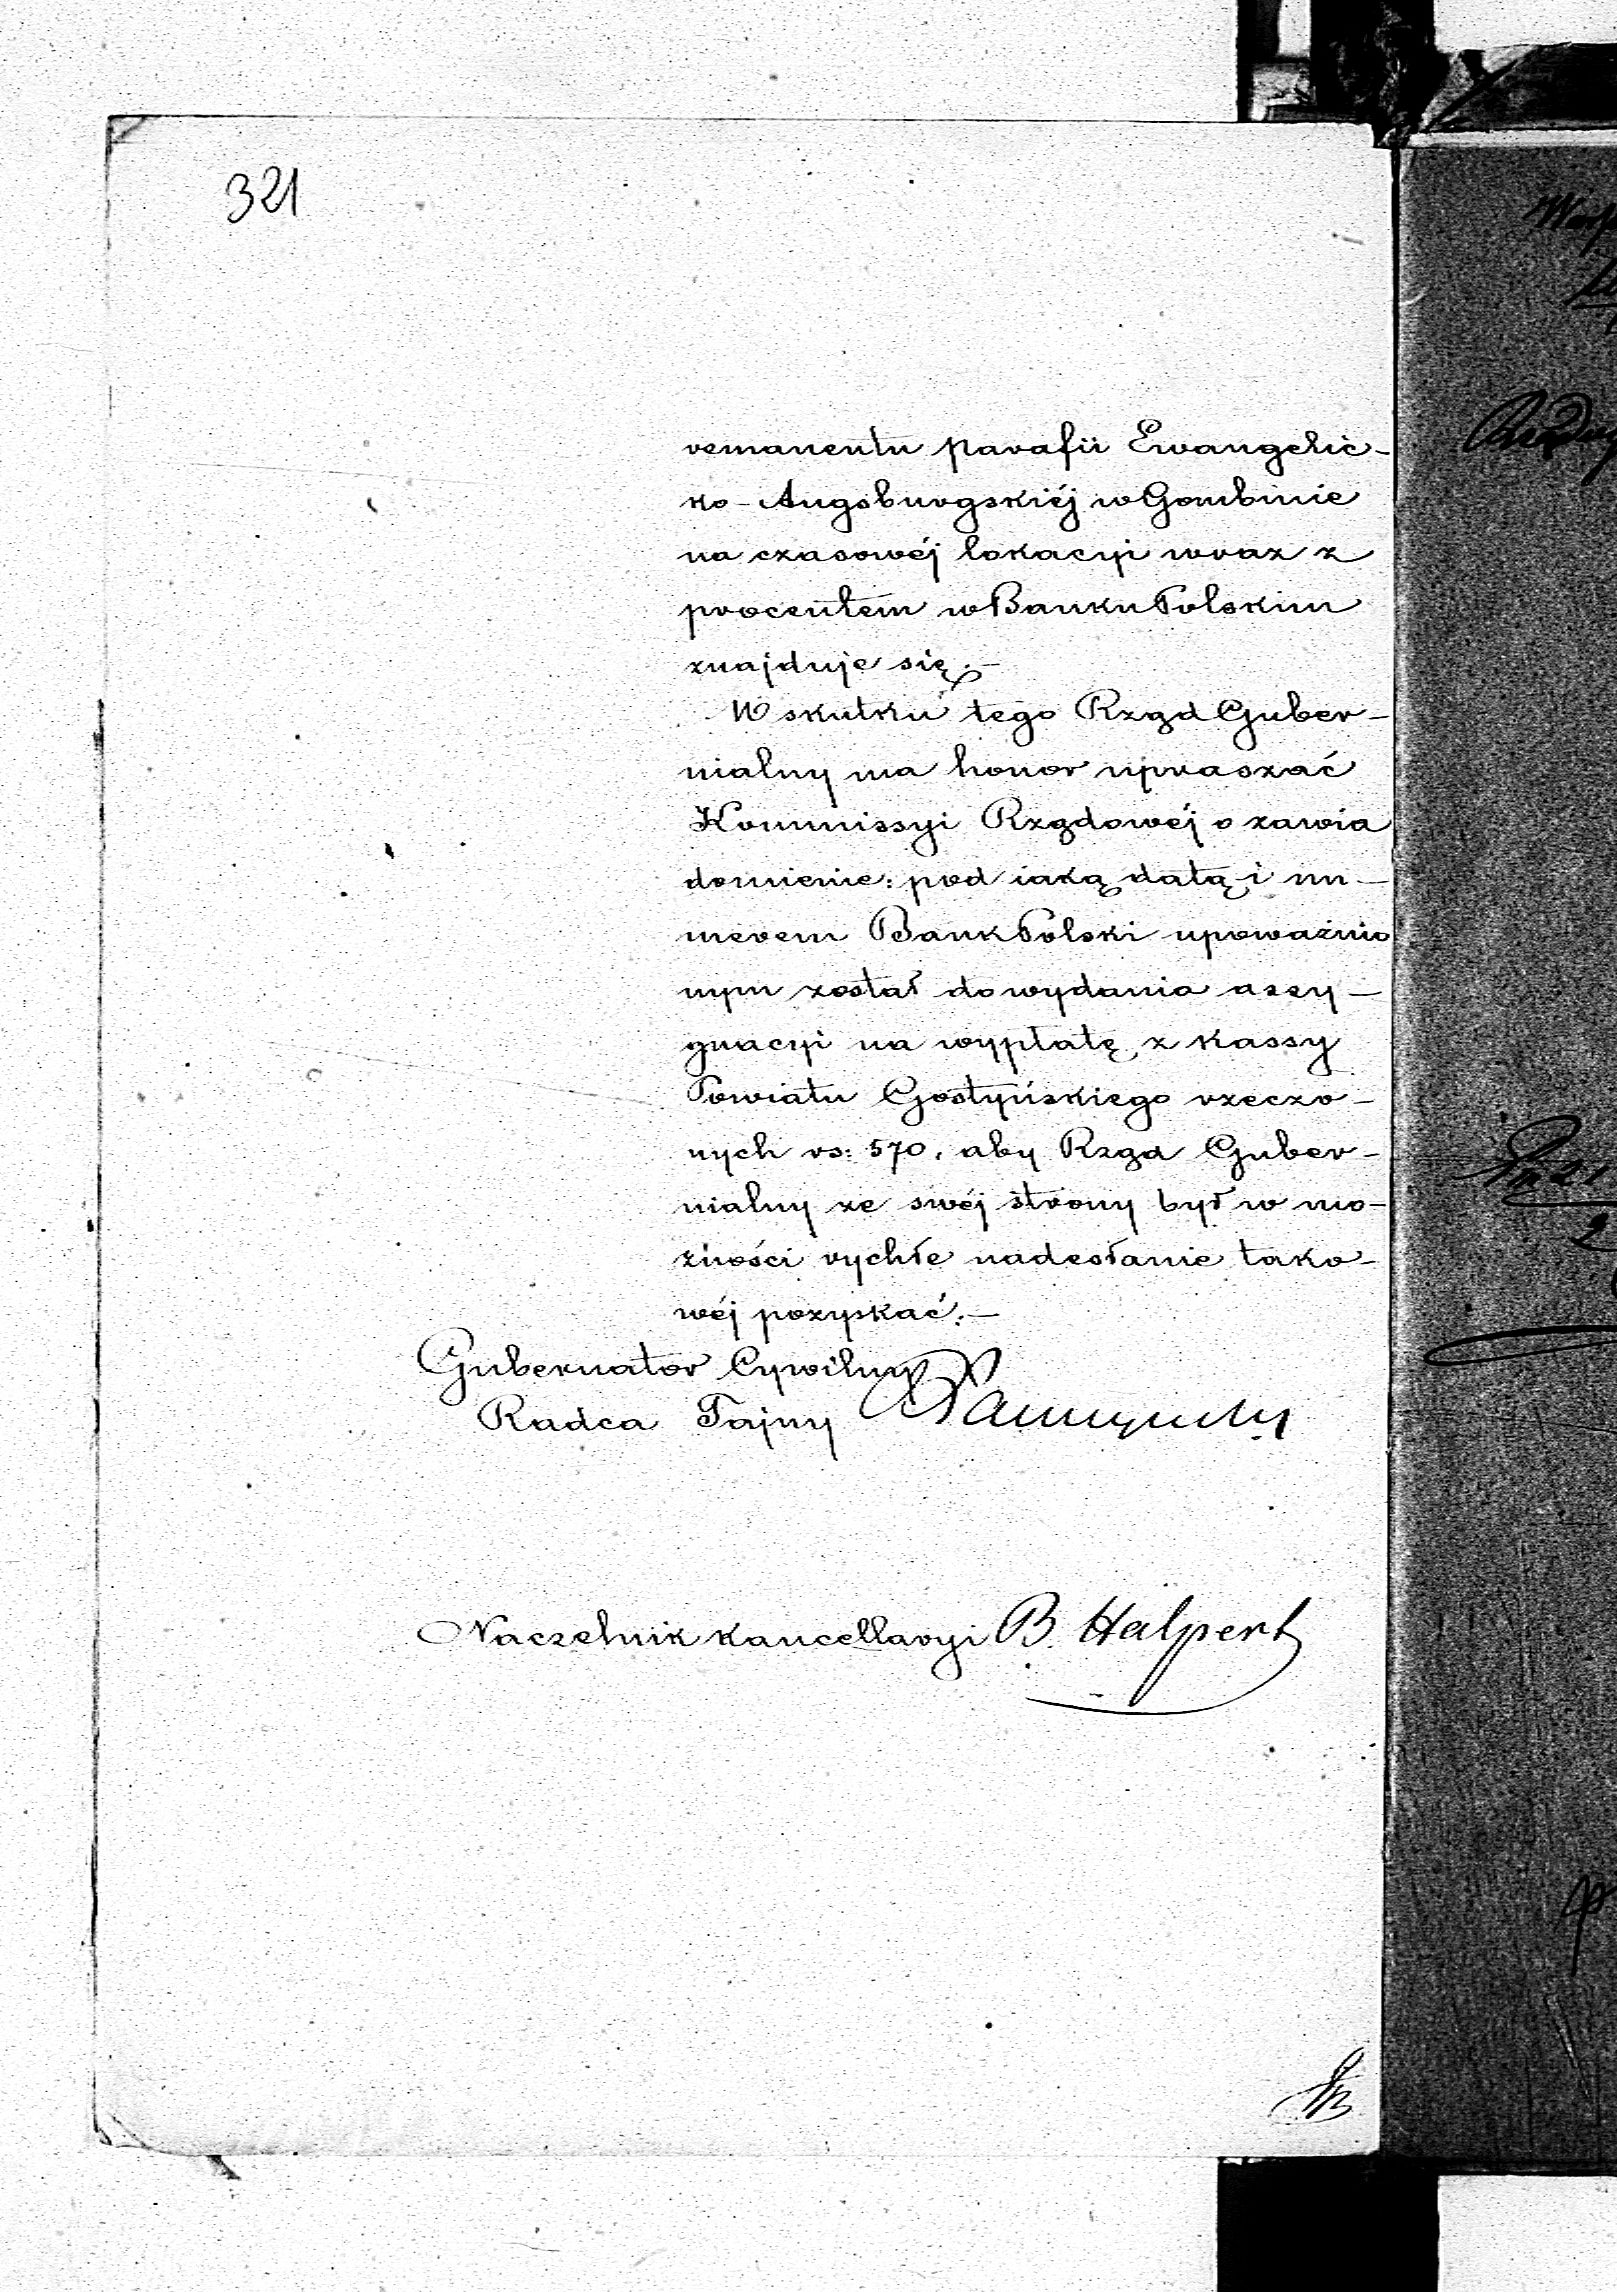 321
remanentu parafii Ewangelic-
ko-Augsburgskiéj w Gombinie
na czasowéj lokacyi wraz z
procentem w Banku Polskim
znajduje się.-
W skutku tego Rząd Guber-
nialny ma honor upraszać
Kommissyi Rządowéj o zawia
domienie: pod iaką datą i nu-
merem Bank Polski upoważnio
nym został do wydania assy-
gnacyi na wypłatę z kassy
Powiatu Gostyńskiego rzeczo-
nych rs: 570, aby Rząd Guber-
nialny ze swéj strony był w mo-
żności rychłe nadesłanie tako-
wéj pozyskać.-
Gubernator Cywilny
Radca Tajny
Naczelnik Kancellaryi B. Halpert